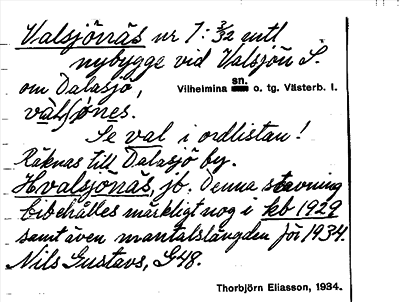 Valsjönäs nr 1: 3/32 mtl
nybygge vid Valsjön S.
om Dalasjö, Vilhelmina sn. o. tg. Västerb. l.
vàlʃónes.
Se val i ordlistan!
Räknas till Dalasjö by.
Hvalsjönäs, jb. Denna stavning
bibehålles märkligt nog i kb 1929
samt även mantalslängden för 1934.
Nils Gustavs, S48.
Thorbjörn Eliasson, 1934.